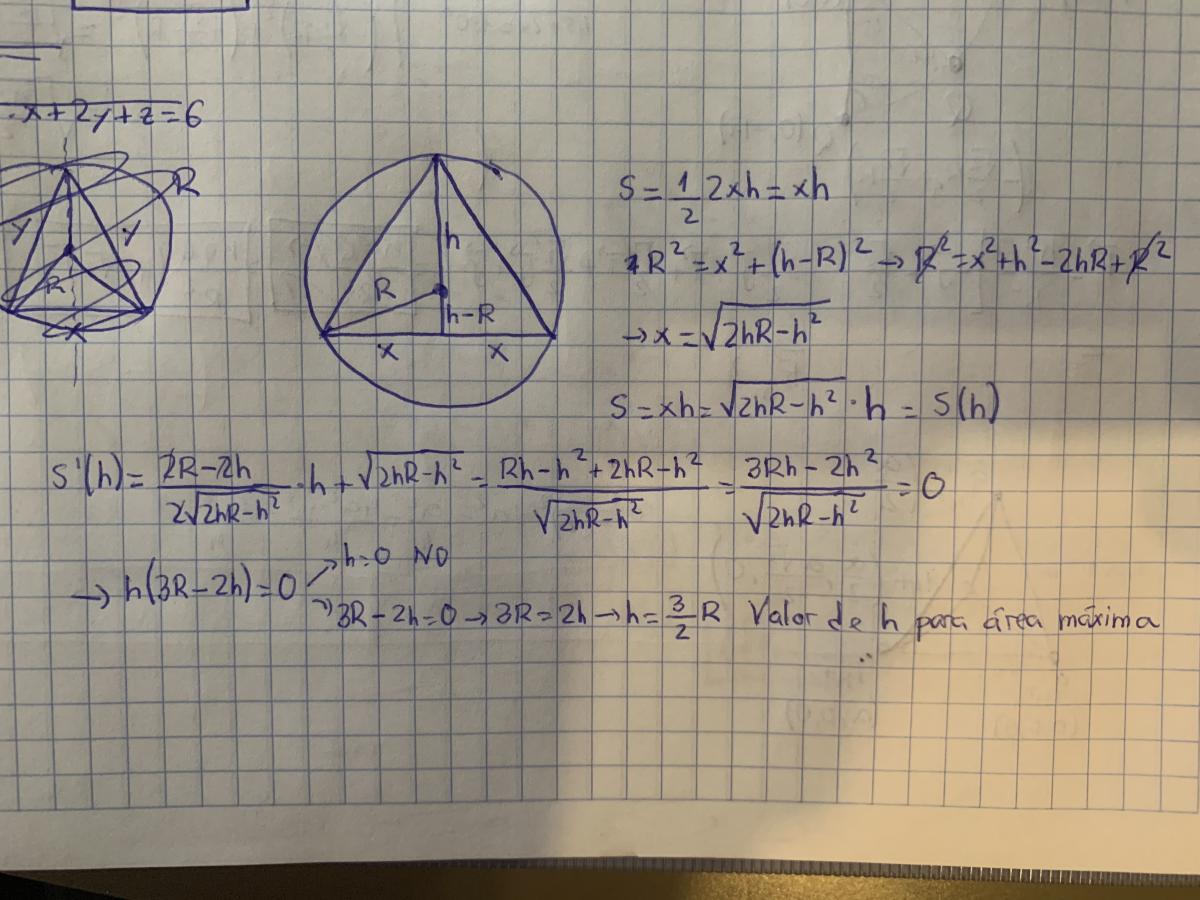 x+2y+z=6
R
y y
R
2x
h
R
h-R
x x
S = 1/2 2xh = xh
R² = x² + (h-R)² → R² = x² + h² - 2hR + R²
→ x = √(2hR-h²)
S = xh = √(2hR-h²) · h = S(h)
S'(h) = (2R-2h)/(2√(2hR-h²)) · h + √(2hR-h²) = (Rh-h²+2hR-h²)/√(2hR-h²) = (3Rh-2h²)/√(2hR-h²) = 0
→ h(3R-2h)=0
h=0 NO
3R-2h=0 → 3R=2h → h=3/2 R Valor de h para área máxima